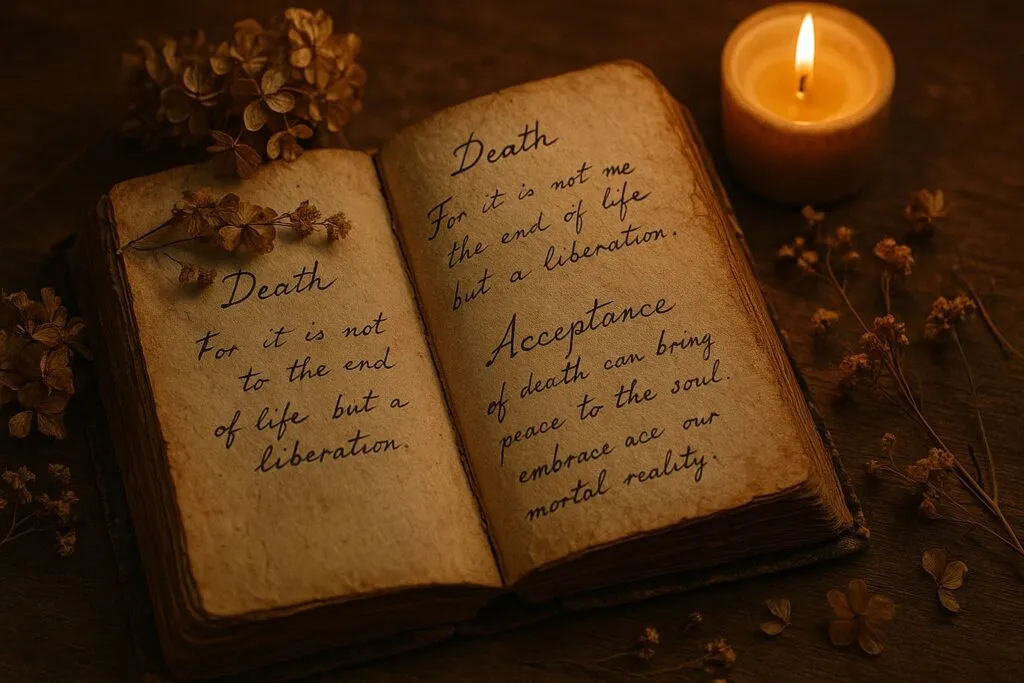 Death
For it is not
to the end
of life but a
liberation.
Death
For it is not me
the end of life
but a liberation.
Acceptance
of death can bring
peace to the soul.
embrace ace our
mortal reality.